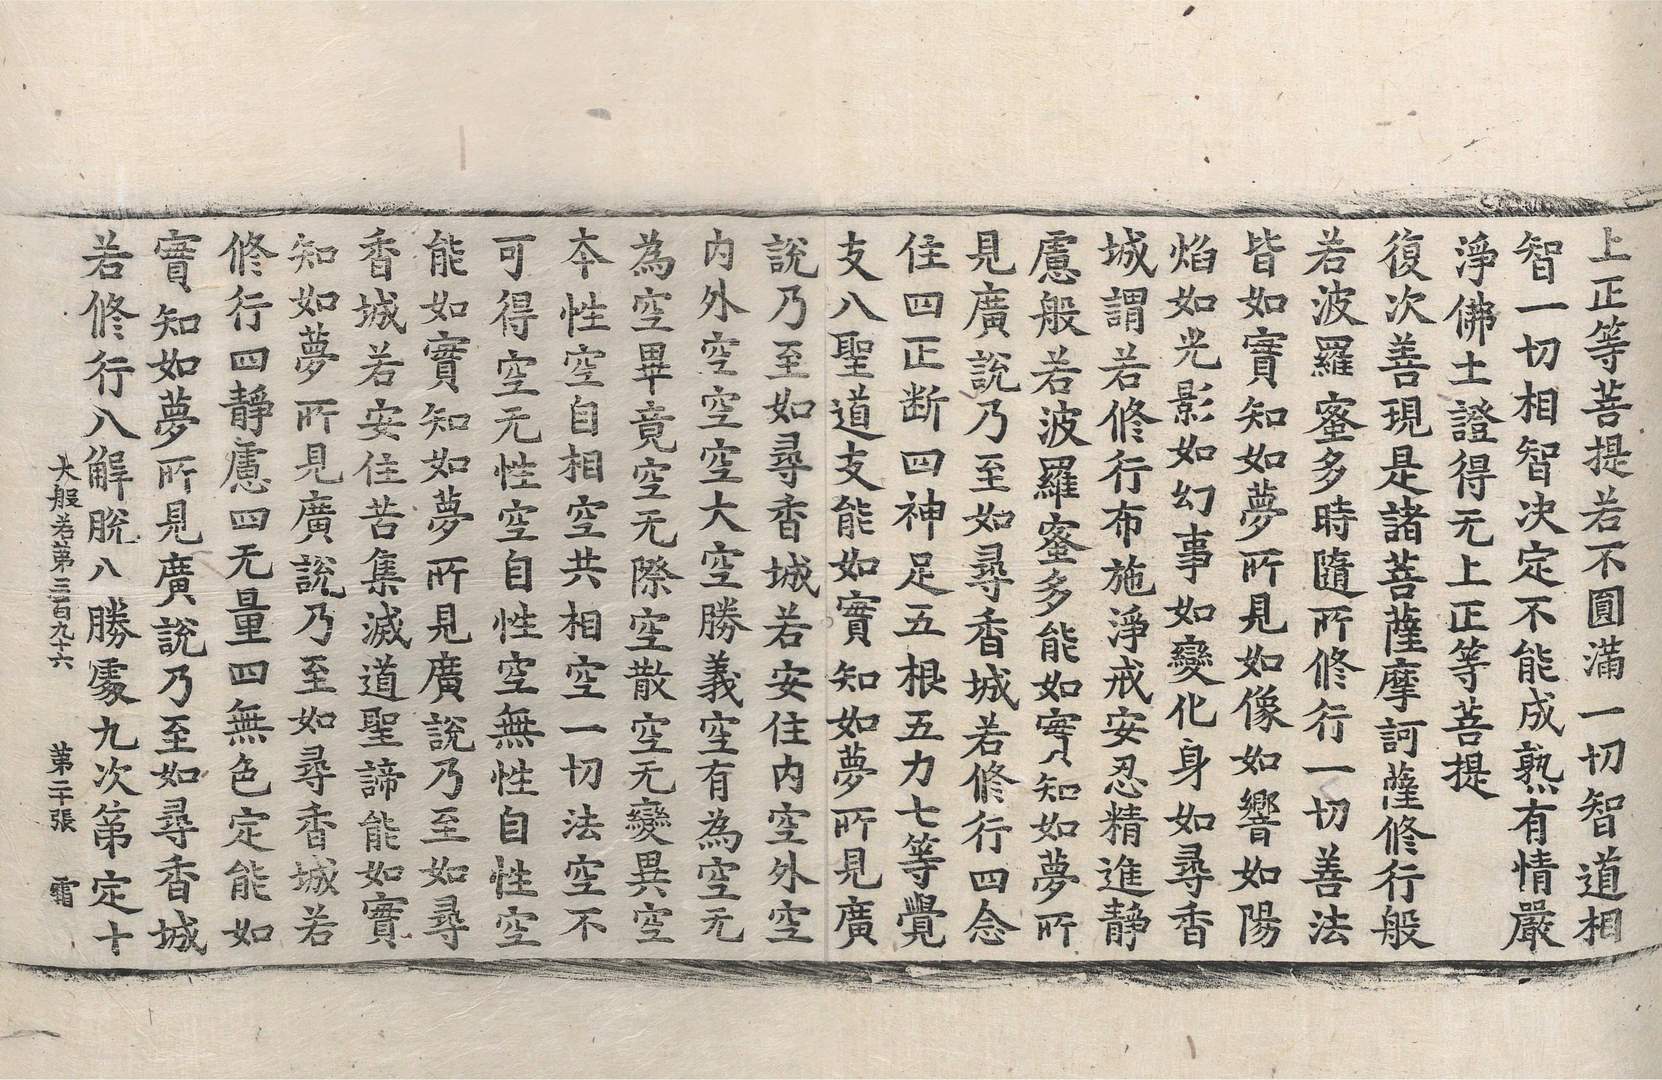 上正等菩提若不圓滿一切智道相
智一切相智决定不能成熟有情嚴
淨佛土證得无上正等菩提
復次善現是諸菩薩摩訶薩修行般
若波羅蜜多時隨所修行一切善法
皆如實知如夢所見如像如響如陽
焰如光影如幻事如變化身如尋香
城謂若修行布施淨戒安忍精進靜
慮般若波羅蜜多能如實知如夢所
見廣說乃至如尋香城若修行四念
住四正断四神足五根五力七等覺
支八聖道支能如實知如夢所見廣
說乃至如尋香城若安住内空外空
内外空空空大空勝義空有為空无
為空畢竟空无際空散空无變異空
本性空自相空共相空一切法空不
可得空无性空自性空無性自性空
能如實知如夢所見廣說乃至如尋
香城若安住苦集滅道聖諦能如實
知如夢所見廣說乃至如尋香城若
修行四靜慮四无量四無色定能如
實知如夢所見廣說乃至如尋香城
若修行八解脫八勝處九次第定十
大般若第三百九十六 第二十張 霜